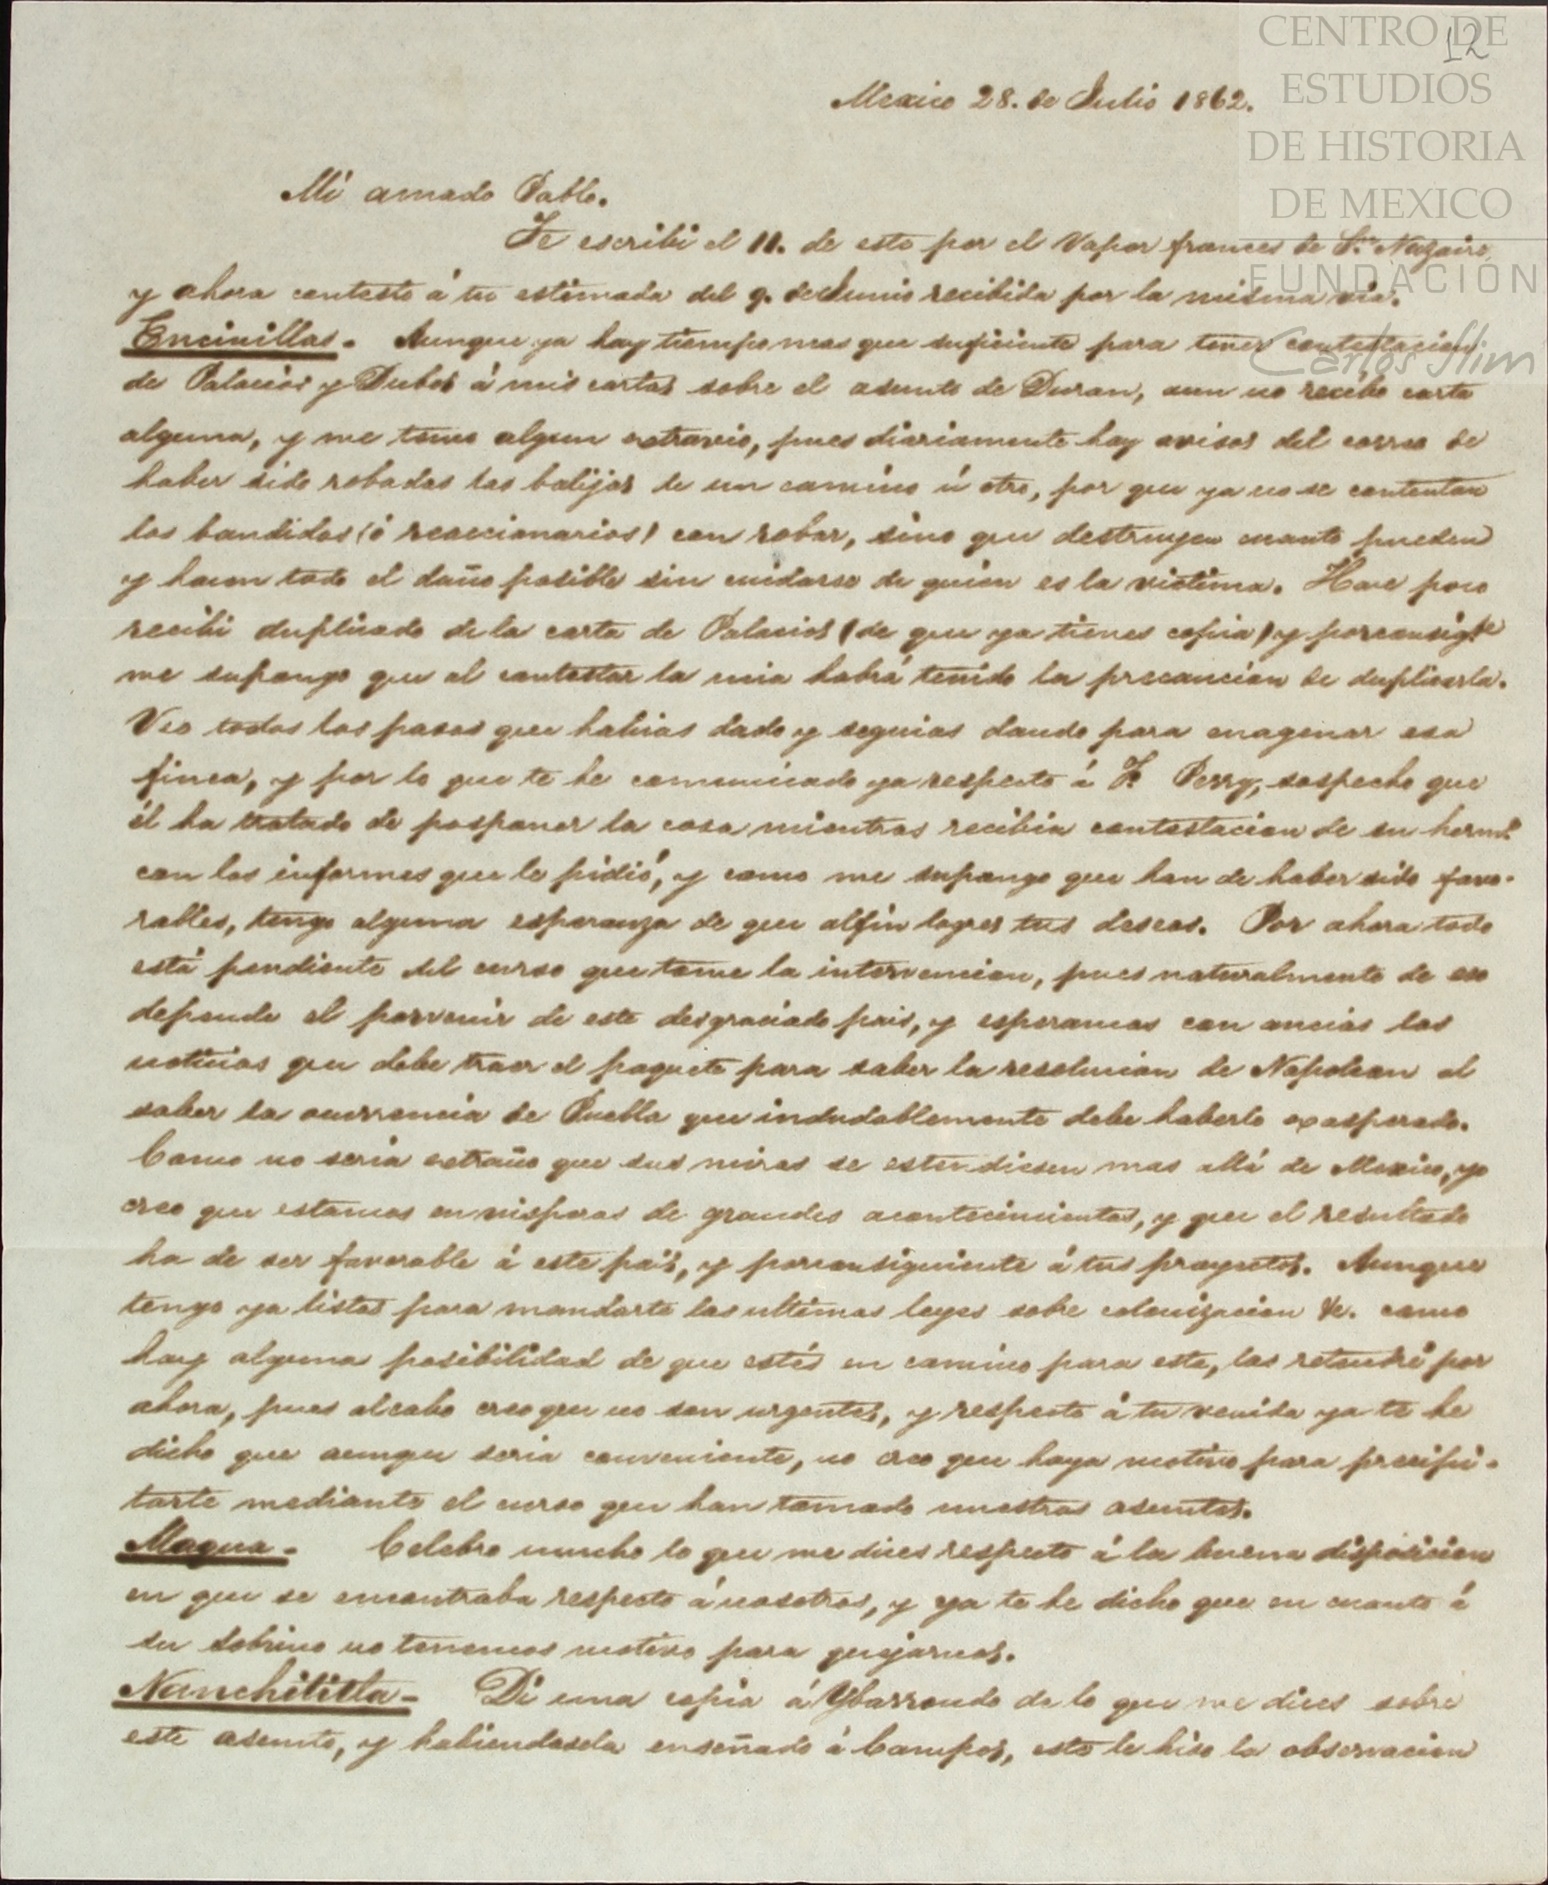 CENTRO DE
ESTUDIOS
DE HISTORIA
DE MEXICO
FUNDACIÓN
Carlos Slim
12
Mexico 28. de Julio 1862.
Mi amado Pablo.
Te escribi el 11. de este por el Vapor frances de St. Nazaire,
y ahora contesto á tu estimada del 9. de Junio recibida por la misma via.
Encinillas. Aunque ya hay tiempo mas que suficiente para tener contestacion
de Palacios y Dubos á mis cartas sobre el asunto de Duran, aun no recibo carta
alguna, y me temo algun extravio, pues diariamente hay avisos del correo de
haber sido robadas las balijas de un camino ú otro, por que ya no se contentan
los bandidos (ó reaccionarios) con robar, sino que destruyen cuanto pueden
y hacen todo el daño posible sin cuidarse de quien es la victima. Hace poco
recibi duplicado de la carta de Palacios (de que ya tienes copia) y porconsigte
me supongo que al contestar la mia habrá tenido la precaucion de duplicarla.
Veo todos los pasos que habias dado y seguias dando para enagenar esa
finca, y por lo que te he comunicado ya respecto á F. Perry, sospecho que
él ha tratado de posponer la cosa mientras recibia contestacion de su hermo.
con los informes que le pidió, y como me supongo que han de haber sido favo-
rables, tengo alguna esperanza de que alfin logres tus deseos. Por ahora todo
está pendiente del curso que tome la intervencion, pues naturalmente de eso
depende el porvenir de este desgraciado pais, y esperamos con ancias las
noticias que debe traer el paquete para saber la resolucion de Napoleon al
saber la ocurrencia de Puebla que indudablemente debe haberlo exasperado.
Como no seria extraño que sus miras se estendiesen mas allá de Mexico, yo
creo que estamos en visperas de grandes acontecimientos, y que el resultado
ha de ser favorable á este pais, y porconsiguiente á tus proyectos. Aunque
tengo ya listas para mandarte las ultimas leyes sobre colonizacion &c. como
hay alguna posibilidad de que estés en camino para esta, las retendré por
ahora, pues alcabo creo que no son urgentes, y respecto á tu venida ya te he
dicho que aunque seria conveniente, no creo que haya motivo para precipi-
tarte mediante el curso que han tomado nuestros asuntos.
Magua- Celebro mucho lo que me dices respecto á la buena disposicion
en que se encontraba respecto á nosotros, y ya te he dicho que en cuanto á
su sobrino no tenemos motivo para quejarnos.
Nanchititla- Di una copia á Ybarrondo de lo que me dices sobre
este asunto, y habiendosela enseñado á Campos, este le hiso la observacion